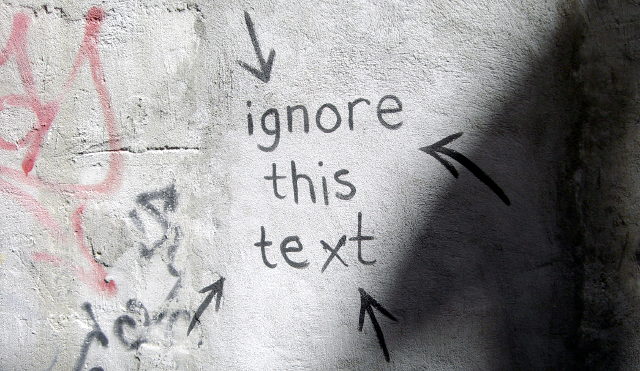 ignore
this
text